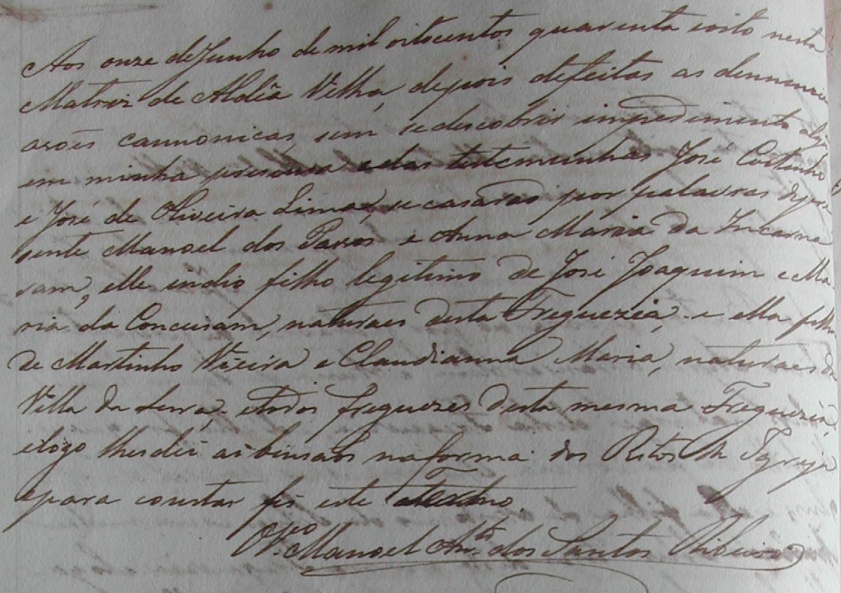 Aos onze de Junho de mil oitocentos quarenta eoito nesta
Matriz de Aldêa Velha, depois defeitas as denunci
açoẽs cannonicas, sem sedescobrir impedimento algũ
em minha presensa edas testemunhas José Coitinho
e José de Oliveira Lima, se casaraõ por palavras depre
sente Manoel dos Paços e Anna Maria da Incarna
sam, elle indio filho legitimo de José Joaquim e Ma
ria da Conceisam, naturaes desta Freguezia e ella filha
de Martinho Vieira e Claudianna Maria, naturaes da
Villa da Serra, etodos freguezes desta mesma Freguezia,
elogo lhesdei asbensaõs naforma dos Ritos da Igreja
epara constar fis este
O Vig.ro Manoel An.to dos Santos Ribeiro